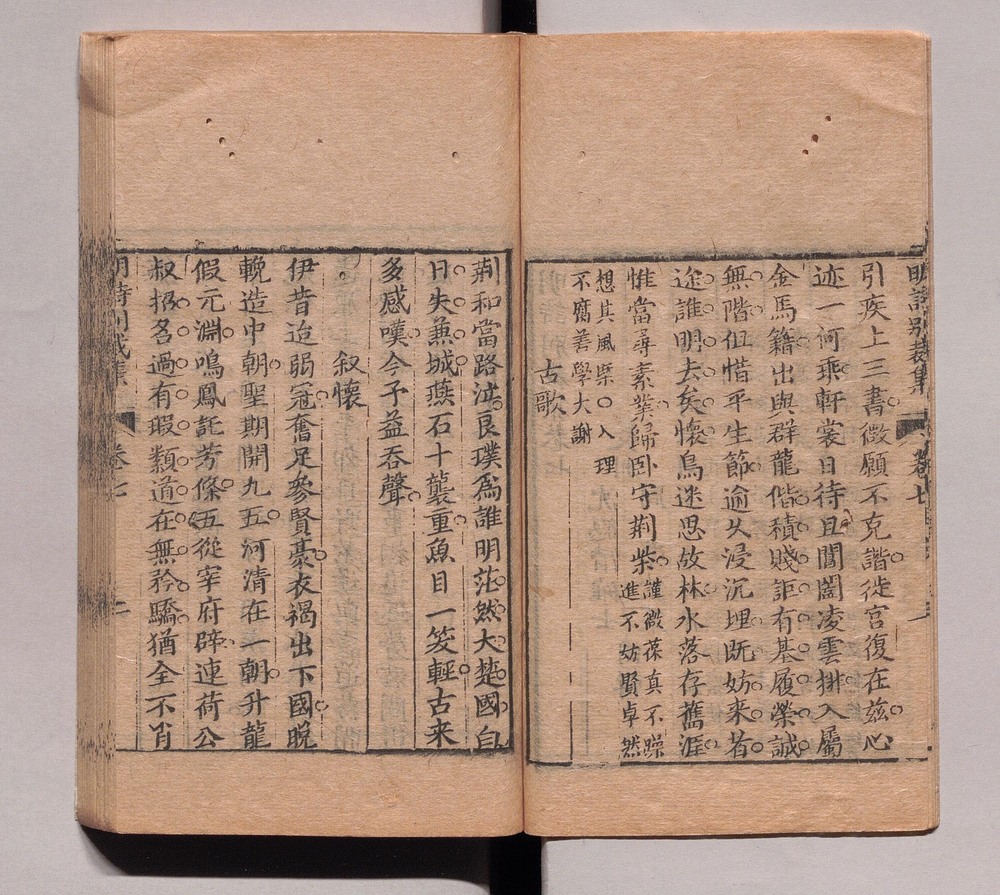 明詩別裁集 卷七
引疾上三書微願不克諧徙宫復在兹心
迹一何乖軒裳日待旦閶闔凌雲排入屬
金馬籍出與群龍偕積賤詎有基履榮誠
無階但惜平生節逾久浸沉埋既妨來者
途誰明去矣懷鳥迷思故林水落存舊涯
惟當尋素業歸卧守荆柴謹微葆真不躁
進不妨賢卓然
想其風槩○入理
不腐善學大謝
古歌
荆和當路泣良璞爲誰明茫然大楚國白
日失兼城燕石十襲重魚目一笑輕古来
多感嘆今子益吞聲
叙懷
伊昔迨弱冠奮足參賢豪衣褐出下國晚
輓造中朝聖期開九五河清在一朝升龍
假元淵鳴鳳託芳條五從宰府辟連荷公
叔招名過有瑕纇道在無矜驕猶全不肖
明詩别裁集 卷七 二